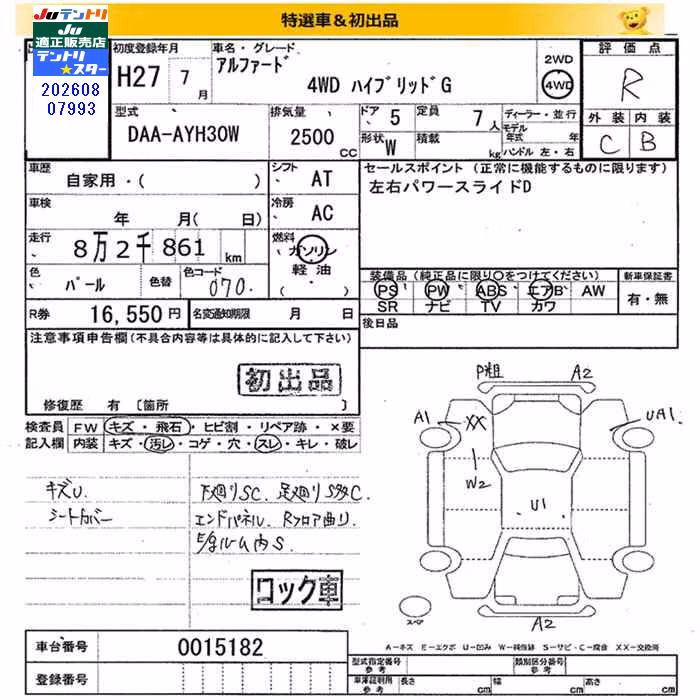 JUテントリ
JU
適正販売店
テントリ
★スター
202608
07993
特選車&初出品
初度登録年月
H27 7月
車名・グレード
アルファード
4WD ハイブリッドG
2WD
4WD
評価点
R
外装 内装
C B
型式
DAA-AYH30W
排気量
2500 CC
ドア 5
形状 W
定員 7人
積載 kg
ディーラー・並行
モデル年式 年
ハンドル 左・右
車歴
自家用・( )
シフト AT
セールスポイント (正常に機能するものに限ります)
左右パワースライドD
車検
年 月( 日)
冷房 AC
走行
8万2千861km
燃料
ガソリン
軽油
( )
色
パール
色替
色コード
070
装備品(純正品に限り○をつけてください)
PS PW ABS エアB AW
SR ナビ TV カワ
新車保証書
有・無
R券 16,550円
名変通知期限 月 日
後日品
注意事項申告欄(不具合内容等は具体的に記入して下さい)
初出品
修復歴 有 〔箇所 〕
検査員
記入欄
FW キズ・飛石・ヒビ割・リペア跡・×要
内装 キズ・汚レ・コゲ・穴・スレ・キレ・破レ
キズU.
シートカバー
下廻りSC.
エンドパネル. Rフロア曲り.
コック車
P粗
A2
A1
XX
UA1
W2
U1
スペア
A2
A-キズ E-エクボ U-凹み W-補修跡 S-サビ・C-腐食 XX-交換済
車台番号 0015182
登録番号
型式指定番号 参考
類別区分番号 参考
車庫証明用 参考
長さ cm 幅 cm 高さ cm